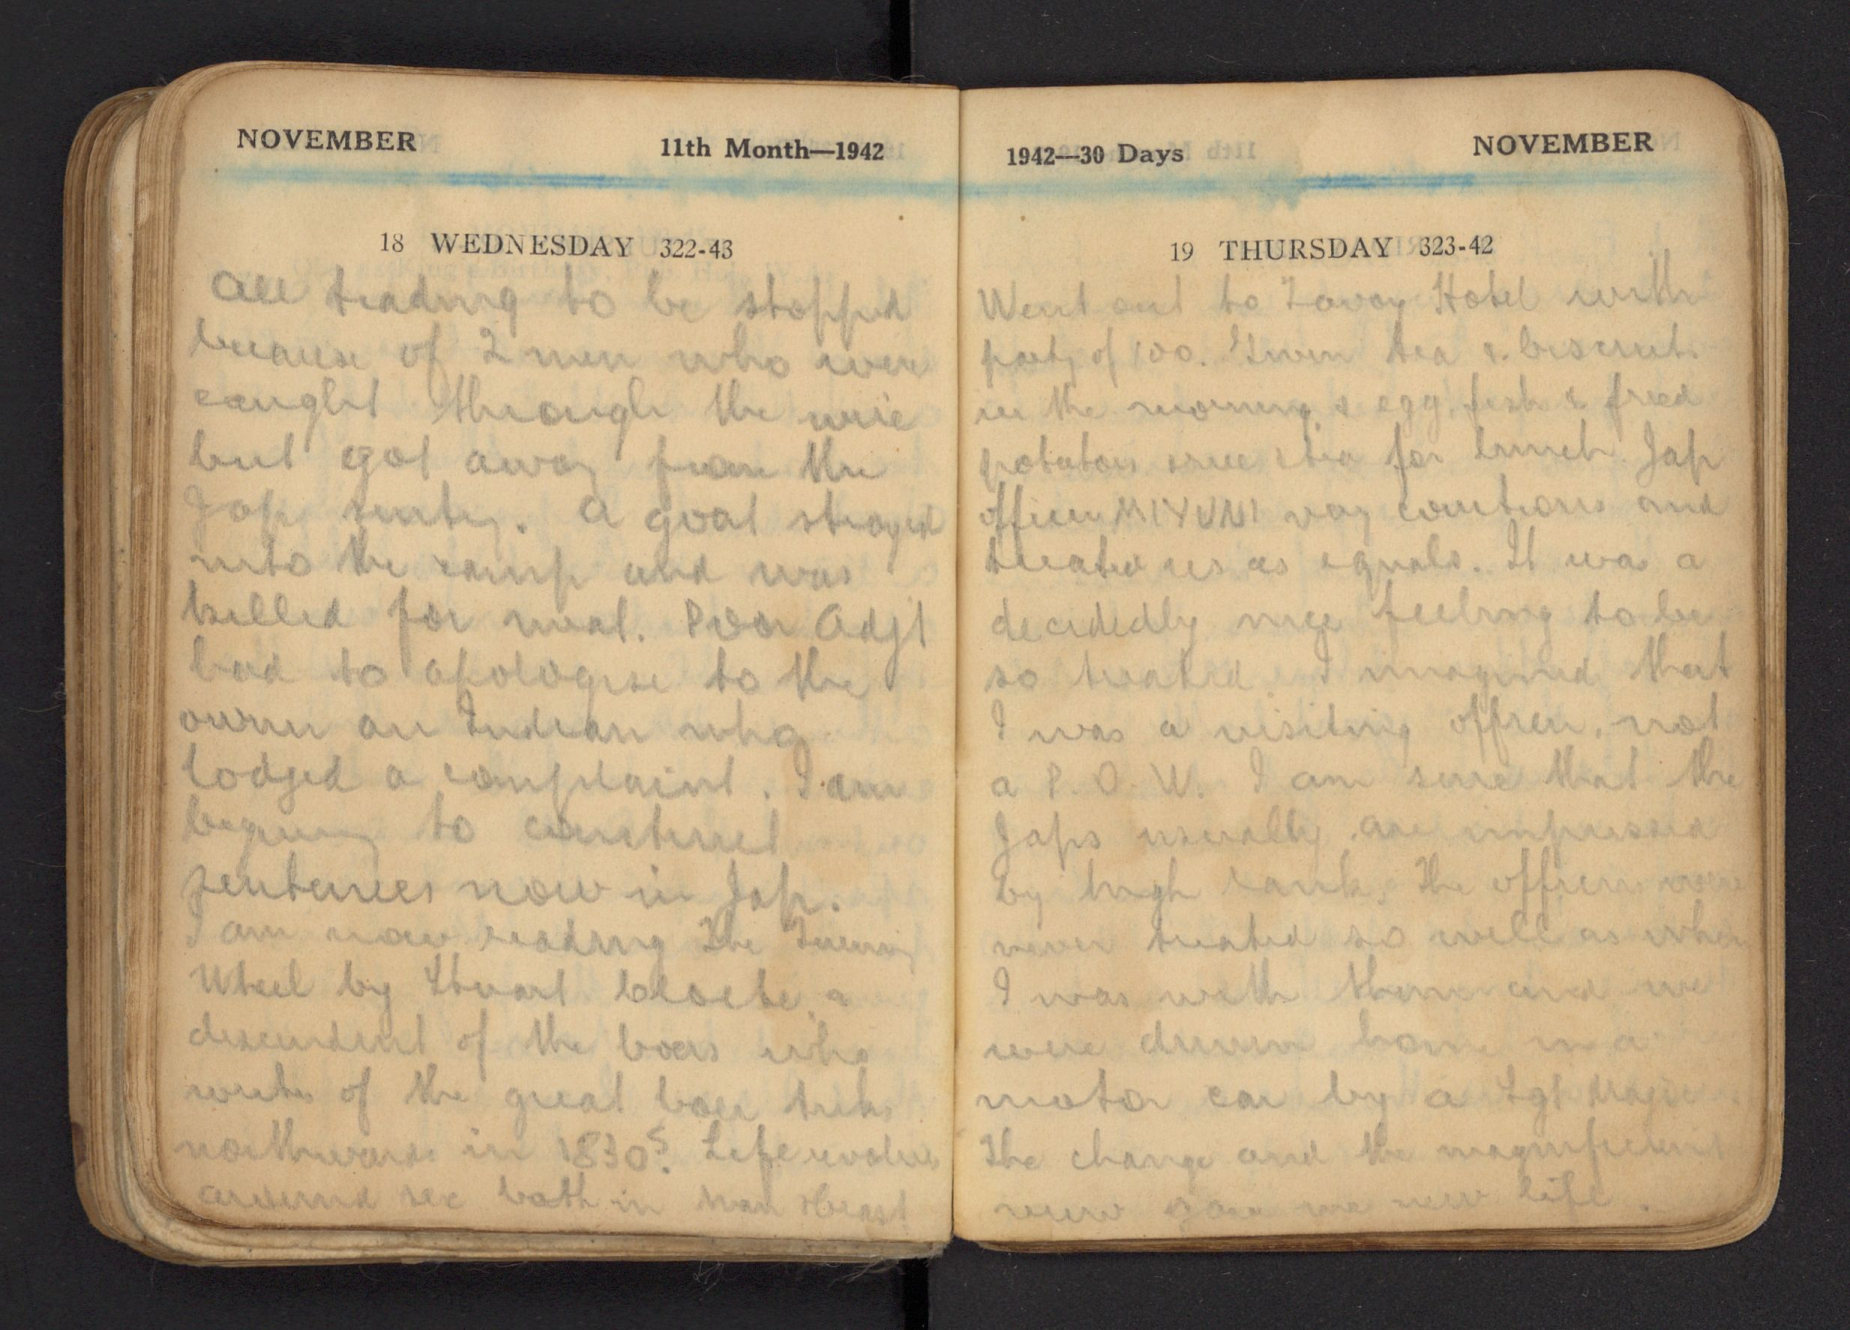 NOVEMBER 11th Month—1942
18 WEDNESDAY 322-43
All trading to be stopped
because of 2 men who were
caught through the wire
but got away from the
Jap sentry. A goat strayed
into the camp and was
killed for meat. Poor Adjt
had to apologise to the
owner an Indian who
lodged a complaint. I am
begining to construct
sentences now in Jap.
I am now reading The Turning
Wheel by Stuart Cloete, a
descendent of the boers who
writes of the great boer treks
northwards in 1830s. Life revolves
around sex both in man & beast
1942—30 Days NOVEMBER
19 THURSDAY 323-42
Went out to Tavoy Hotel with
party of 100. Given tea & biscuits
in the morning & egg, fish & fried
potatoes rice & tea for lunch. Jap
officer MIYUNI very courteous and
treated us as equals. It was a
decidedly nice feeling to be
so treated. I imagined that
I was a visiting officer, not
a P.O.W. I am sure that the
Japs usually are impressed
by high rank. The officers were
never treated so well as when
I was with them and we
were driven home in a
motor car by a Sgt Major.
The change and the magnificent
view gave me new life.